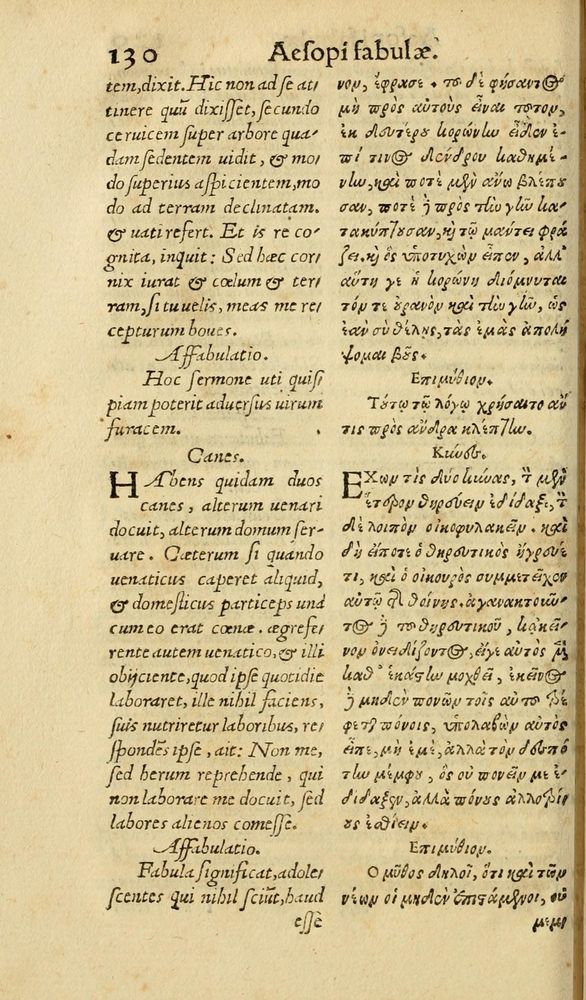 130 Aesopi fabulæ.
tem, dixit. Hic non ad se at/
tinere quū dixisset, secundo
ceruicem super arbore qua/
dam sedentem uidit, & mo/
do superius aspicientem, mo
do ad terram declinatam.
& uati refert. Et is re co/
gnita, inquit: Sed hæc cor/
nix iurat & cœlum & ter/
ram, si tu uelis, meas me re/
cepturum boues.
Affabulatio.
Hoc sermone uti quisi
piam poterit aduersus uirum
furacem.
Canes.
HAbens quidam duos
canes, alterum uenari
docuit, alterum domum ser/
uare. Cæterum si quando
uenaticus caperet aliquid,
& domesticus particeps unà
cum eo erat cœnæ. ægrefe/
rente autem uenatico, & illi
obijciente, quod ipse quotidie
laboraret, ille nihil faciens,
suis nutriretur laboribus, re/
spondēs ipse, ait: Non me,
sed herum reprehende, qui
non laborare me docuit, sed
labores alienos comesse.
Affabulatio.
Fabula significat, adole/
scentes qui nihil sciūt, haud
esse
νον, ἔφρασε. τοῦ δὲ φήσαντος
μὴ πρὸς αὐτοὺς εἶναι τοῦτον,
ἐκ δευτέρου κορώνην εἶδεν ἐ-
πί τινος δένδρου καθημέ-
νην, καὶ ποτὲ μὲν ἄνω βλέπου
σαν, ποτὲ ἢ πρὸς τὴν γῆν κα-
τακύπτουσαν, κỳ τῷ μάντει φρά
ζει. κỳ ὃς ὑποτυχὼν εἶπεν, ἀλλ'
αὕτη γε ἡ κορώνη διόμνυται
τόν τε οὐρανὸν καὶ τὴν γῆν, ὡς
ἐὰν σὺ θέλῃς, τὰς ἐμὰς ἀπολή
ψομαι βοῦς.
Ἐπιμύθιον.
Τούτῳ τῷ λόγῳ χρήσαιτο ἄν
τις πρὸς ἄνδρα κλέπτην.
Κύνες.
ΕΧων τὶς δύο κύνας, τ̀ μὲν
ἕτερον θηρεύειν ἐδίδαξε, τ̀
δὲ λοιπὸν οἰκοφυλακεῖν. καὶ
δὴ εἴποτε ὁ θηρευτικὸς ἤγρευέ
τι, καὶ ὁ οἰκουρὸς συμμετεῖχον
αὐτῷ τῆς θοίνης. ἀγανακτοῦν-
τος ἢ τοῦ θηρευτικοῦ, κἀκεῖ-
νον ὀνειδίζοντος, εἴγε αὐτὸς μὲν
καθ' ἑκάστην μοχθεῖ, ἐκεῖνος
ἢ μηδὲν πονῶν τοῖς αὐτοῦ τρέ
φεται πόνοις, ὑπολαβὼν αὐτὸς
εἶπε, μὴ ἐμὲ, ἀλλὰ τὸν δεσπό
την μέμφου, ὃς οὐ πονεῖν με ἐ-
δίδαξεν, ἀλλὰ πόνους ἀλλοτρί-
ους ἐσθίειν.
Ἐπιμύθιον.
Ο μῦθος δηλοῖ, ὅτι καὶ τῶν
νέων οἱ μηδὲν ἐπιστάμενοι, οὐ
μεμ/